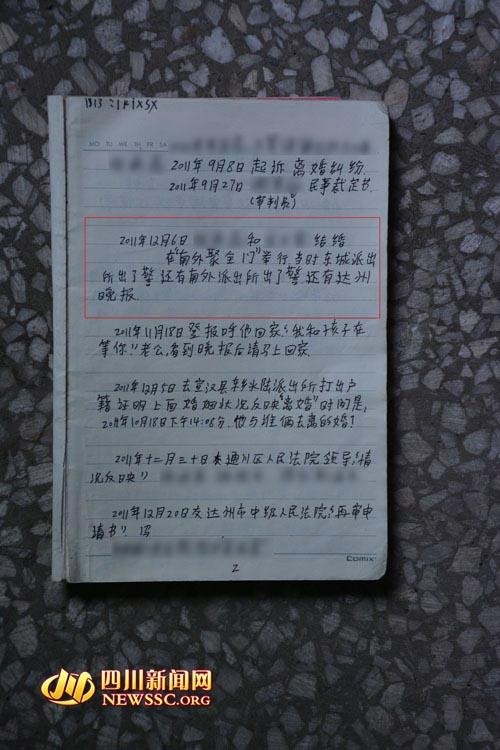 MO TU WE TH FR SA
2011年9月8日 起诉 离婚纠纷.
2011年9月27日 民事裁定书.
(审判员)
2011年12月6日 和 结婚
在"南外聚全门"举行,当时东城派出
所出了警,还有南外派出所出了警.还有达州
晚报.
2011年11月18日登报呼他回家"我和孩子在
等你"老公,看到晚报后请马上回家.
2011年12月5日去宣汉县 派出所打出户
籍证明上面婚姻状况反映"离婚"时间是,
2011年10月18日下午14:06分.他与谁俩去离的婚?
2011年十二月三十日来通川区人民法院领导"情
况反映"
2011年12月20日交达州市中级人民法院"再审申
请书"
COMIX
2
四川新闻网
NEWSSC.ORG